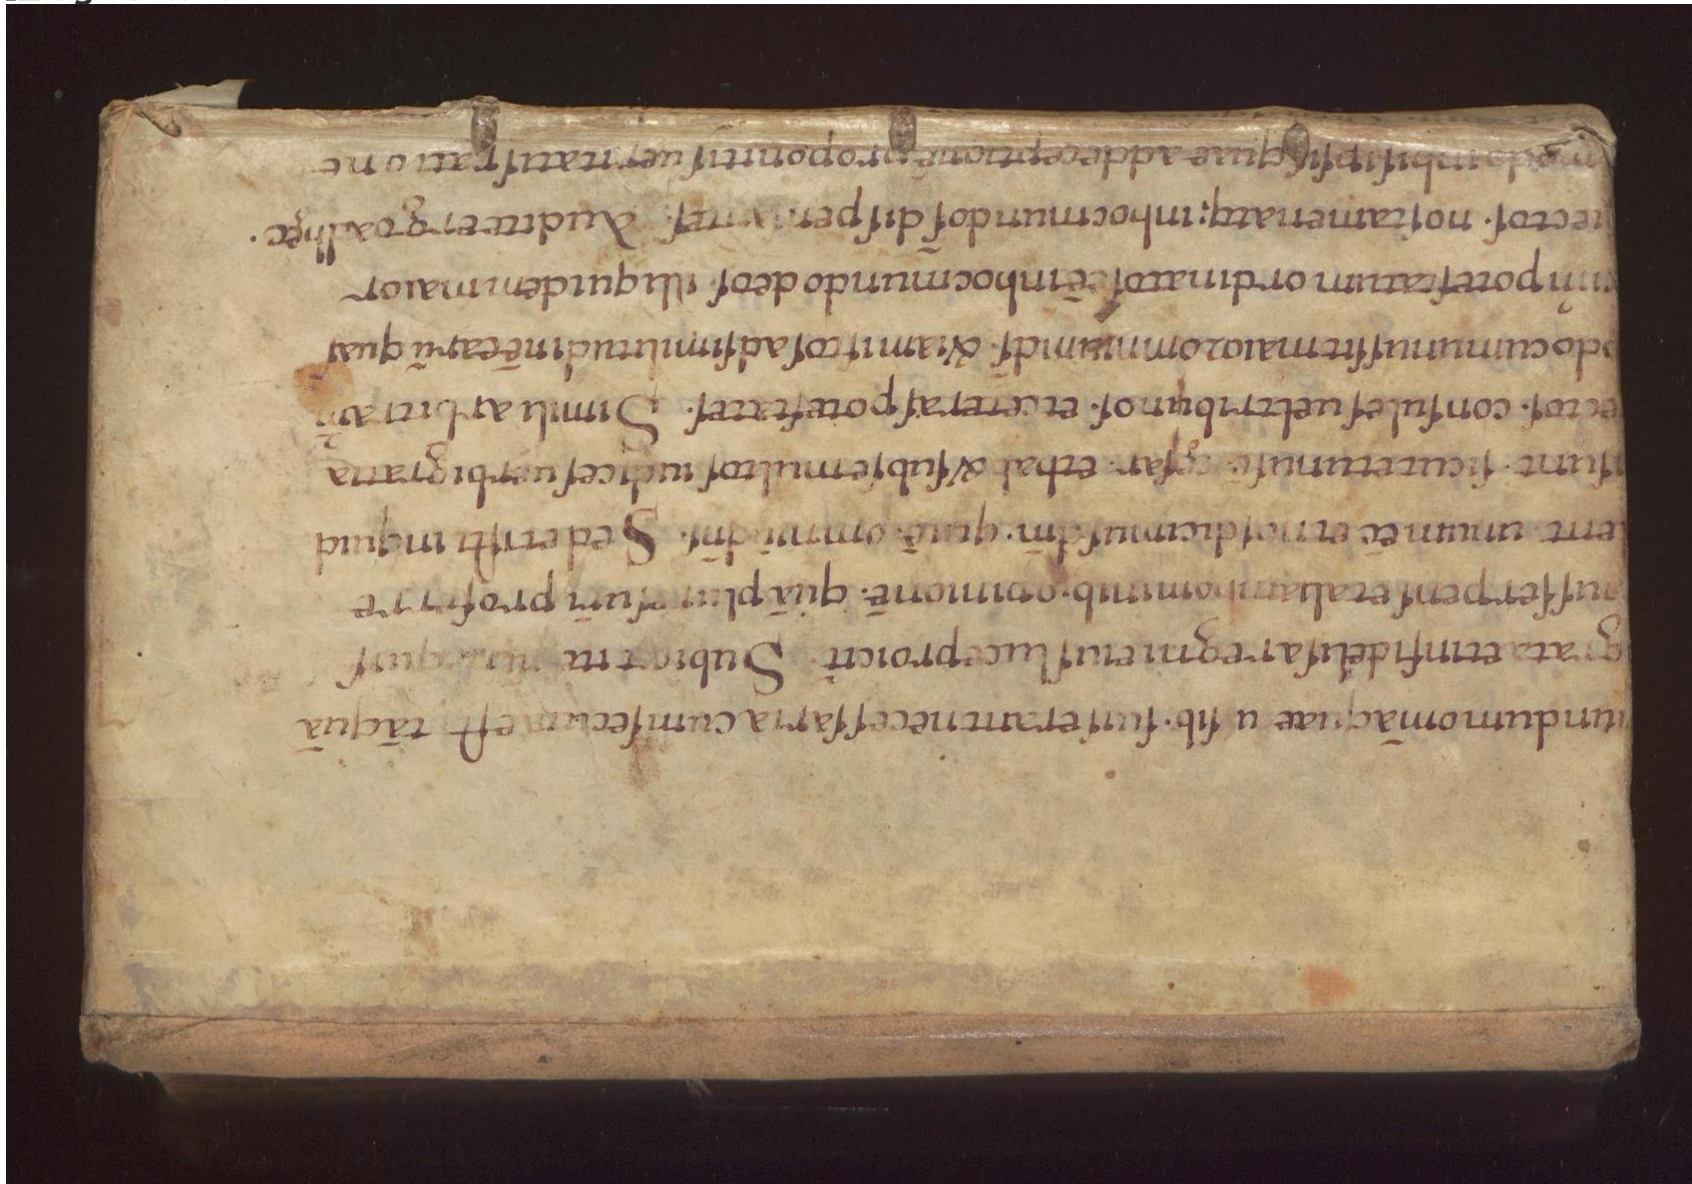 undum omā quae u sib· fuierant necessaria cum fecum est tāquā
grata et infidelis a regni eius luce proiciet· Subiecit quis
nus serpens et aliam hominib· opinionē· quā plurimum profuere
lent unum ēē et nos dicimus dm̄· qui ē omniū dn̄s· Sed et isti inquid
sunt· sicut et unus ē cęsar· et hab& sub se multos iudices uerbi gratia
ectos· consules uel tribunos· et ceteras potestates· Simili arbitram̄
do cum unus sit maior omnium ds̄· & iam istos ad similitudinē earū quas
potestatum ordinatos ēē in hoc mundo deos illi quidem maior
iectos· nos tamen atq; in hoc mundo dispensantes· Audite ergo ad hęc·
modo in his ipsis quae ad deceptionē proponitis ueritatis ratione